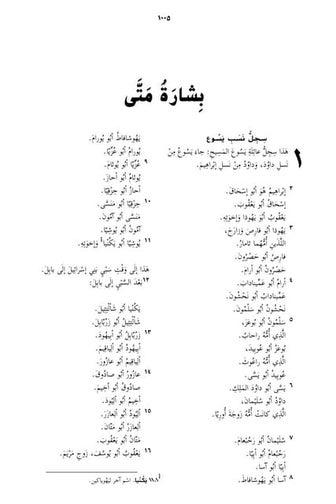 ١٠٠٥
بِشارَةُ مَتَّى
سِجِلُّ نَسَبِ يَسُوع
١ هَذا سِجِلُّ عائِلَةِ يَسُوعَ المَسِيحِ: جاءَ يَسُوعُ مِنْ
نَسلِ داوُدَ، وَداوُدُ مِنْ نَسلِ إبْراهِيمَ.
٢ إبْراهِيمُ هُوَ أبُو إسْحاقَ.
إسْحاقُ أبُو يَعْقُوبَ.
يَعْقُوبُ أبُو يَهُوذا وَإخوَتِهِ.
٣ يَهُوذا أبُو فارِصَ وَزارَحَ،
اللَّذَينِ أُمُّهُما ثامارُ.
فارِصُ أبُو حَصْرُونَ.
حَصْرُونُ أبُو أرامَ.
٤ أرامُ أبُو عَمِّينادابَ.
عَمِّينادابُ أبُو نَحْشُونَ.
نَحْشُونُ أبُو سَلْمُونَ.
٥ سَلْمُونُ أبُو بُوعَزَ،
الَّذِي أُمُّهُ راحابُ.
بُوعَزُ أبُو عُوبِيدَ،
الَّذِي أُمُّهُ راعُوثُ.
عُوبِيدُ أبُو يَسَّى.
٦ يَسَّى أبُو داوُدَ المَلِكِ.
داوُدُ أبُو سُلَيْمانَ،
الَّذِي كانَتْ أُمُّهُ زَوجَةَ أُورِيّا.
٧ سُلَيْمانُ أبُو رَحُبْعامَ.
رَحُبْعامُ أبُو أبِيّا.
أبِيّا أبُو آسا.
٨ آسا أبُو يَهُوشافاطَ.
يَهُوشافاطُ أبُو يُورامَ.
يُورامُ أبُو عُزِّيّا.
٩ عُزِّيّا أبُو يُوثامَ.
يُوثامُ أبُو أحازَ.
أحازُ أبُو حِزْقِيّا.
١٠ حِزْقِيّا أبُو مَنَسَّى.
مَنَسَّى أبُو آمُونَ.
آمُونُ أبُو يُوشِيّا.
١١ يُوشِيّا أبُو يَكُنْيا أ وَإخوَتِهِ.
هَذا إلَى وَقْتِ سَبْيِ بَنِي إسْرائِيلَ إلَى بابِلَ.
١٢ بَعْدَ السَّبْيِ إلَى بابِلَ:
يَكُنْيا أبُو شَألْتِئِيلَ.
شَألْتِئِيلُ أبُو زَرُبّابِلَ.
١٣ زَرُبّابِلُ أبُو أبِيهُودَ.
أبِيهُودُ أبُو ألِياقِيمَ.
ألِياقِيمُ أبُو عازُورَ.
١٤ عازُورُ أبُو صادُوقَ.
صادُوقُ أبُو أخِيمَ.
أخِيمُ أبُو ألِيُودَ.
١٥ ألِيُودُ أبُو ألِعازَرَ.
ألِعازَرُ أبُو مَتّانَ.
مَتّانُ أبُو يَعْقُوبَ.
١٦ يَعْقُوبُ أبُو يُوسُفَ، زَوجِ مَرْيَمَ.
أ ١١:١ يَكُنْيا. اسْم آخر لِيَهُوياكِين.